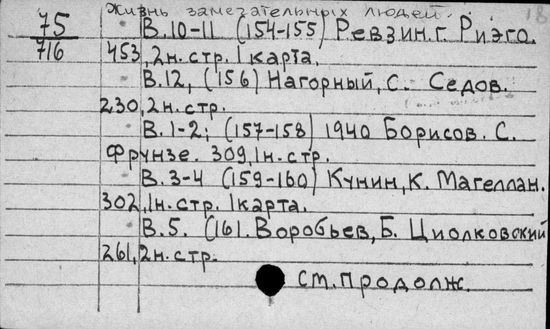 Жизнь замечательных людей. 18
75 В.10-11 (154-155) Ревзин.г. Риэго.
716 453, 2н.стр. 1 карта.
В.12, (156) Нагорный, С. Седов.
230, 2н.стр.
В.1-2; (157-158) 1940 Борисов. С.
Фрунзе. 309, 1н.стр.
В.3-4 (159-160) Кунин, К. Магеллан.
302, 1н.стр. 1 карта.
В.5. (161. Воробьев, Б. Циолковский
261, 2н.стр.
ст. продолж.